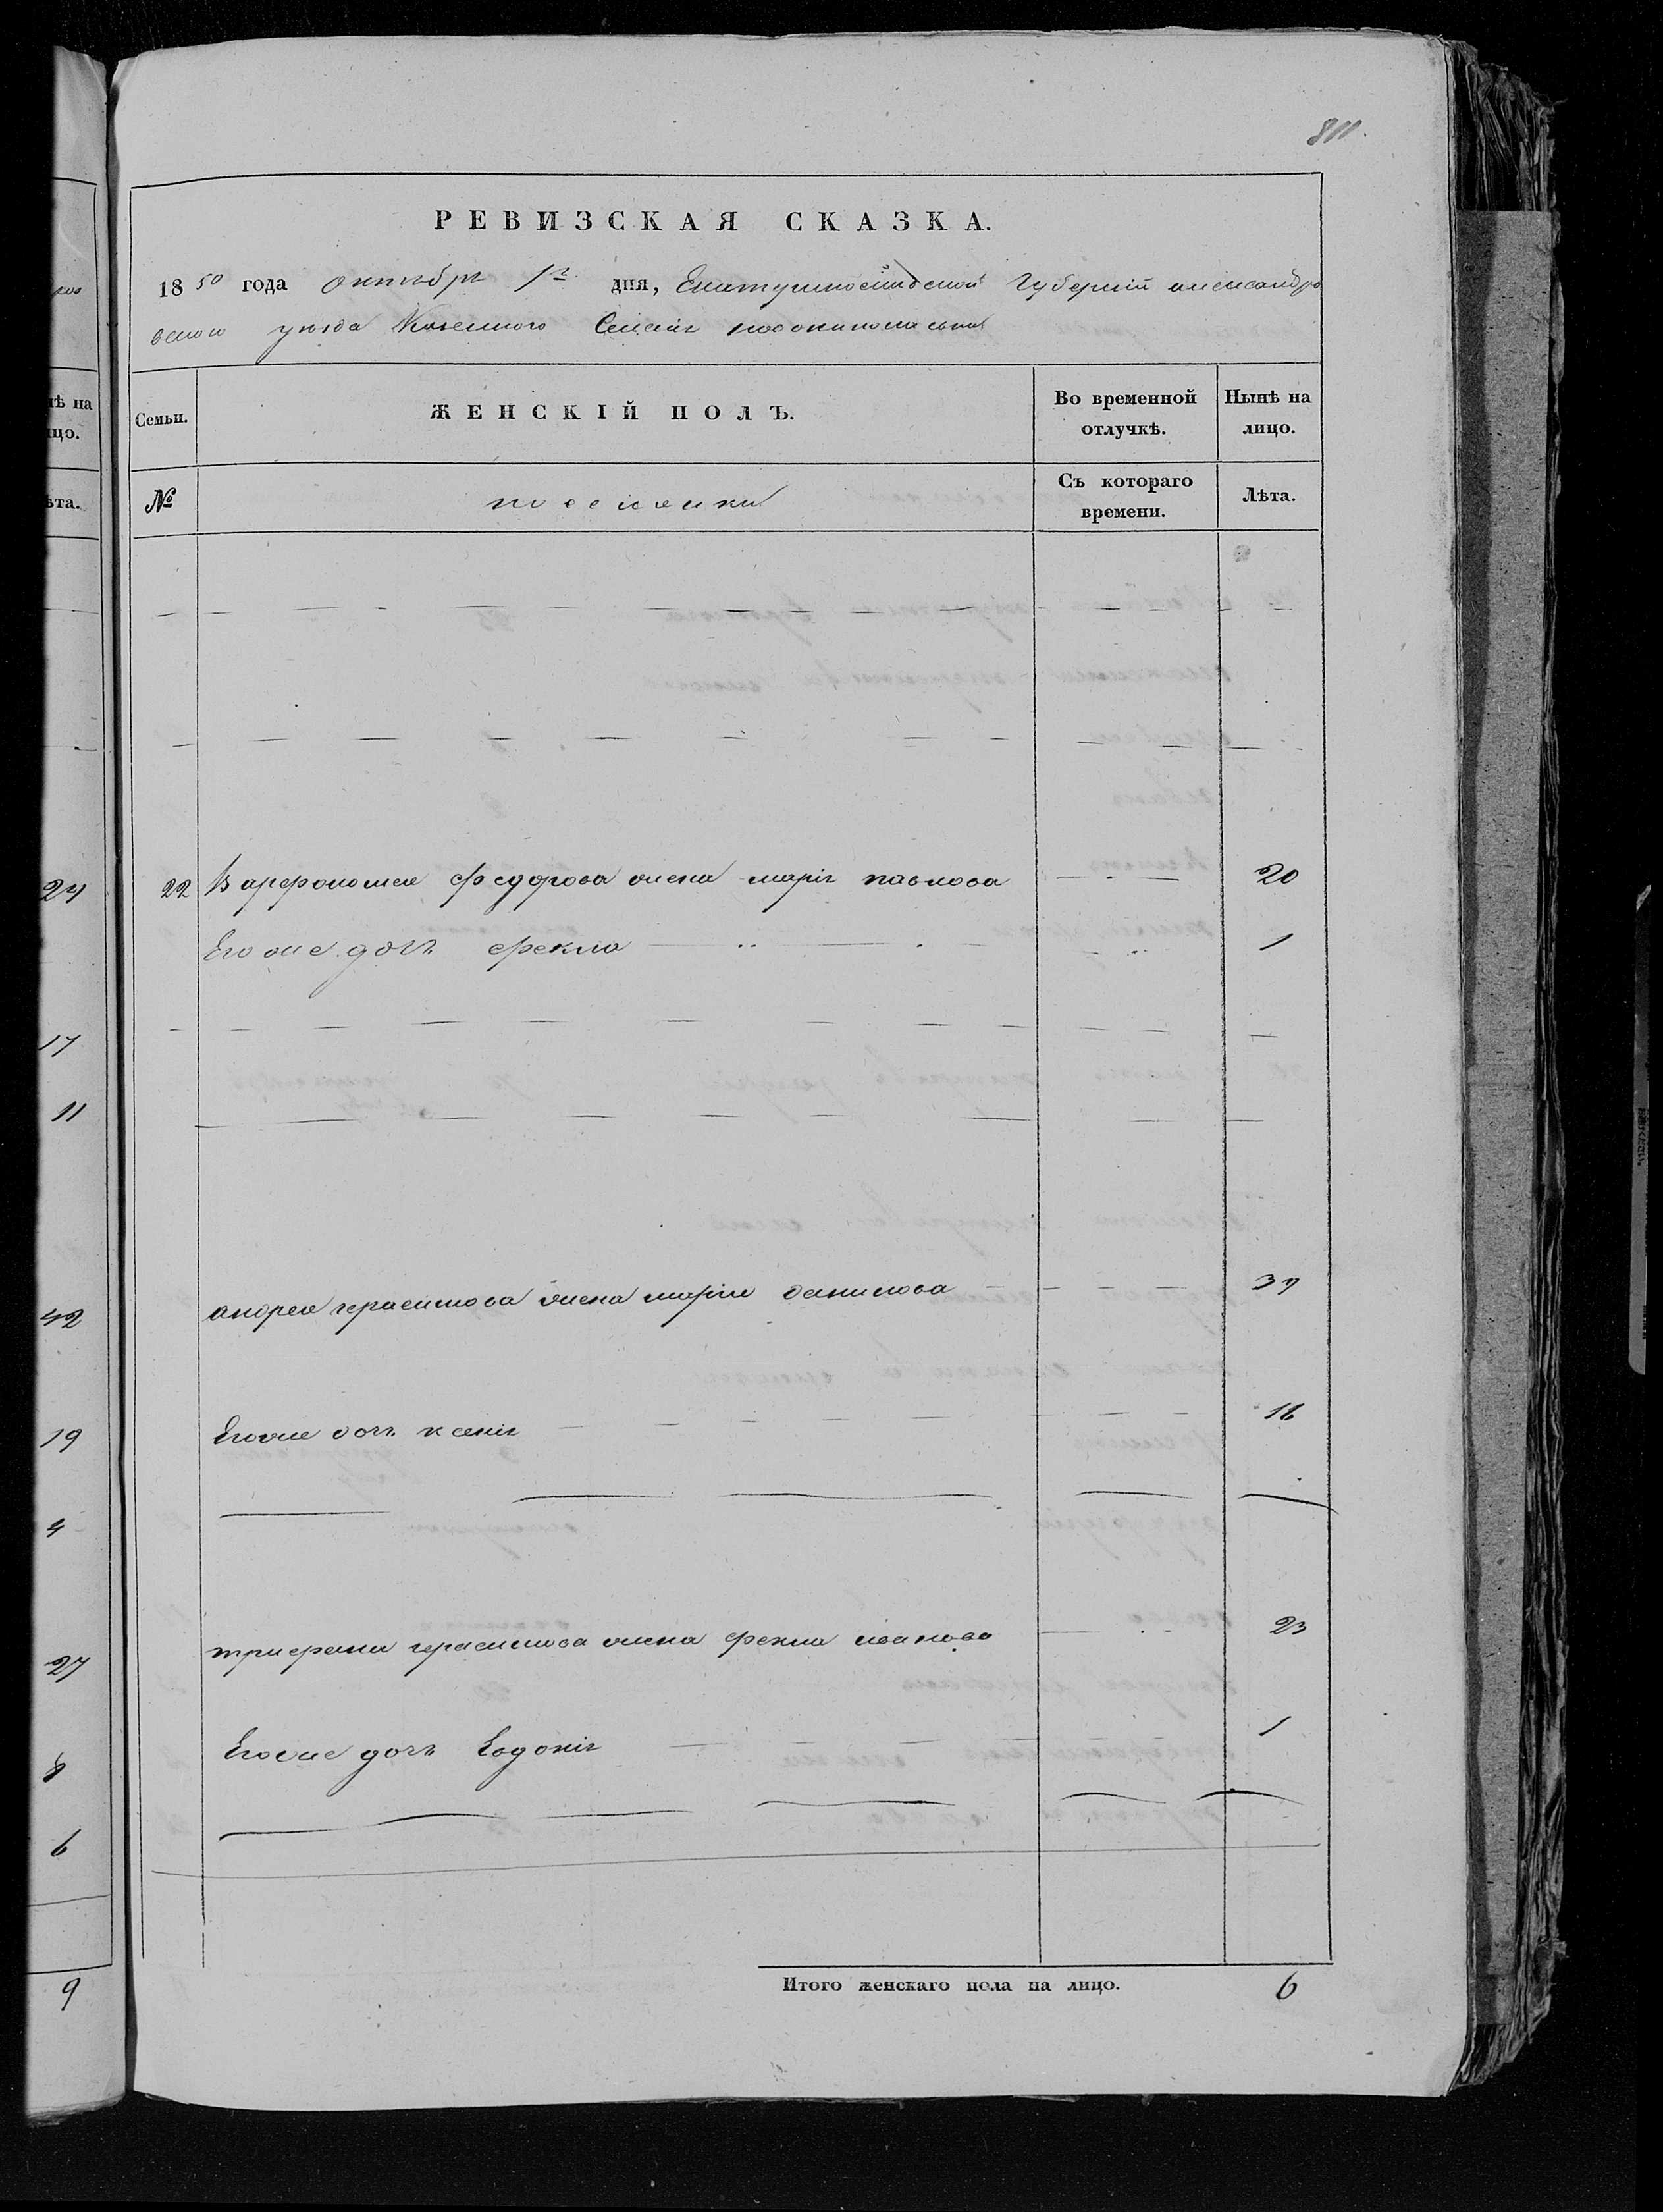 811.
РЕВИЗСКАЯ СКАЗКА.
1850 года октября 1го дня, Екатеринославской Губернии александро
вского уезда Казенного Селения
Семьи.
ЖЕНСКІЙ ПОЛЪ.
Во временной отлучкѣ.
Нынѣ на лицо.
№
Съ котораго времени.
Лѣта.
22 Варфоломея Федорова жена марія павлова 20
Его же дочь фекла 1
андрея герасимова жена марія данилова 37
Его же дочь ксенія 16
трифона герасимова жена фекла иванова 23
Его же дочь Евдокія 1
Итого женскаго пола на лицо. 6
24
17
11
42
19
4
27
8
6
9